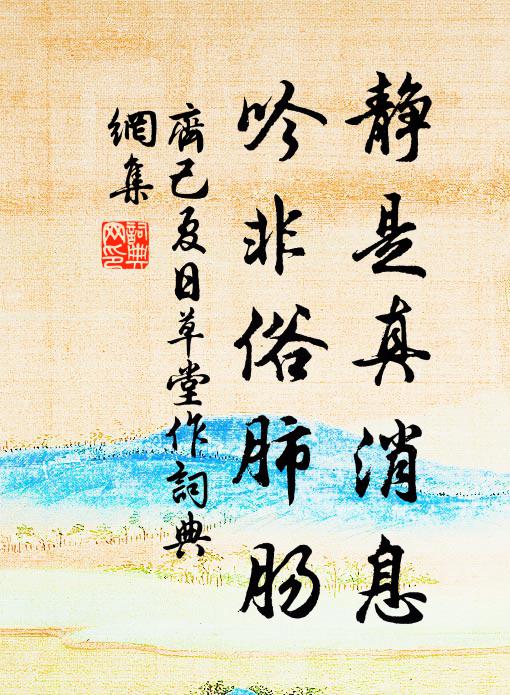 静是真消息
吟非俗肺肠
齊己夏日草堂作詞典
網集
詞典
网印